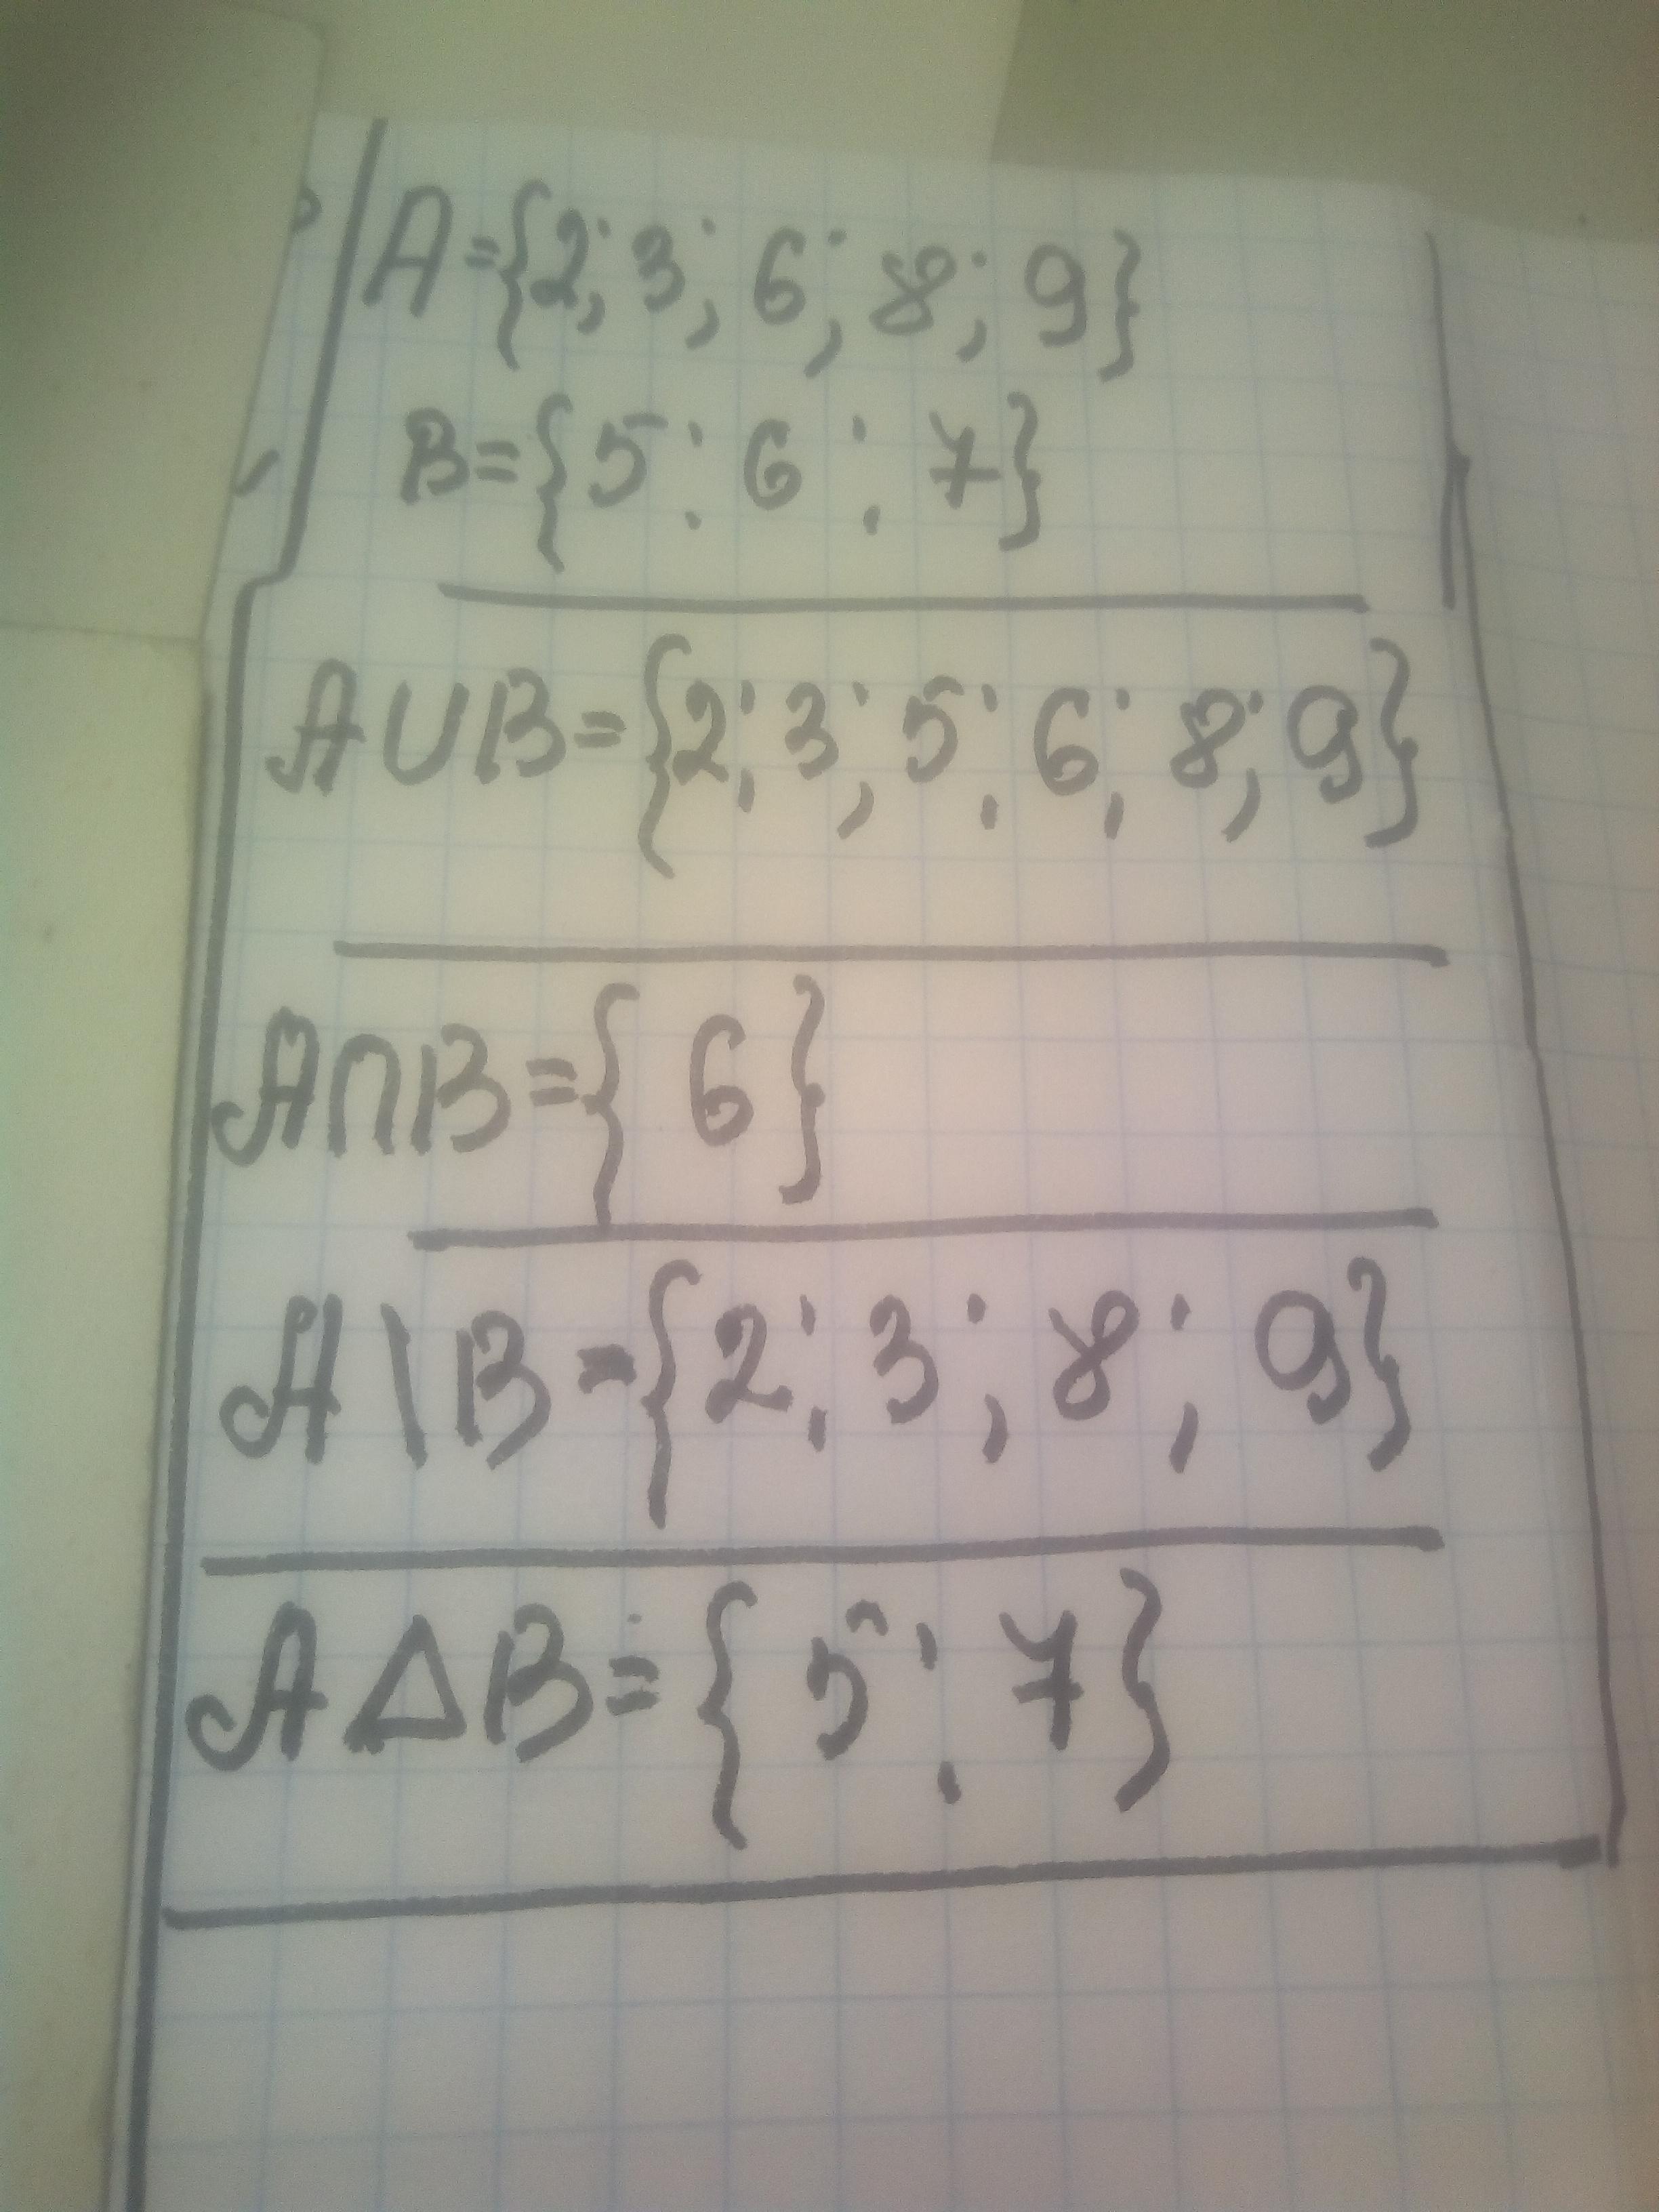 A={2; 3; 6; 8; 9}
B={5; 6; 7}
A∪B={2; 3; 5; 6; 8; 9}
A∩B={6}
A\B={2; 3; 8; 9}
A△B={5; 7}